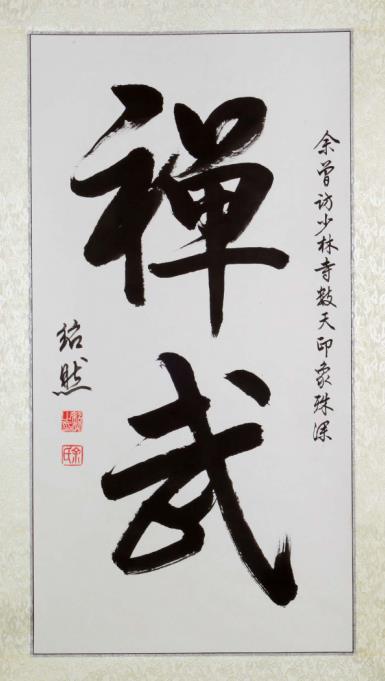 余曾访少林寺数天印象殊深
禅武
绍然
余氏